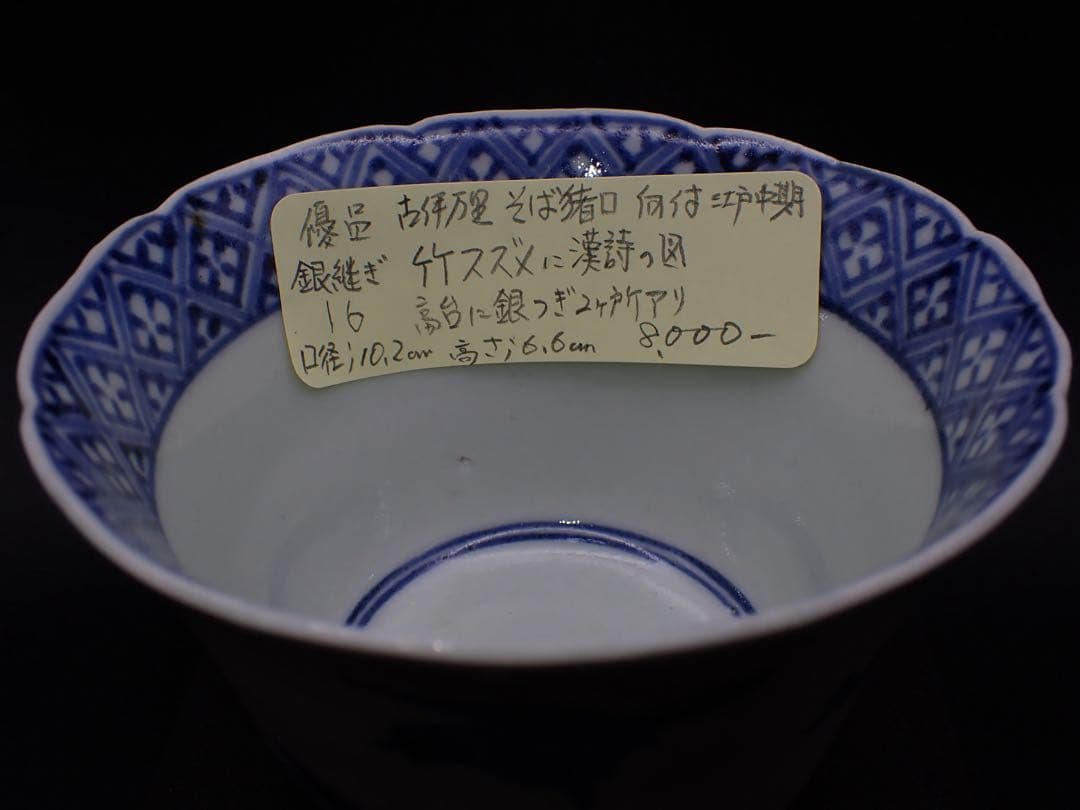 優品 古伊万里 そば猪口 向付 江戸中期
銀継ぎ 竹スズメに漢詩の図
16 高台に銀つぎ2ヶ所アリ
口径;10.2cm 高さ;6.6cm 8,000-